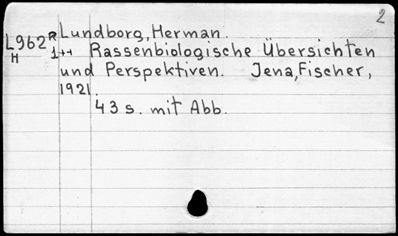 2
L962 R Lundborg, Herman.
H 1++ Rassenbiologische Übersichten
und Perspektiven. Jena, Fischer,
1921.
43 s. mit Abb.